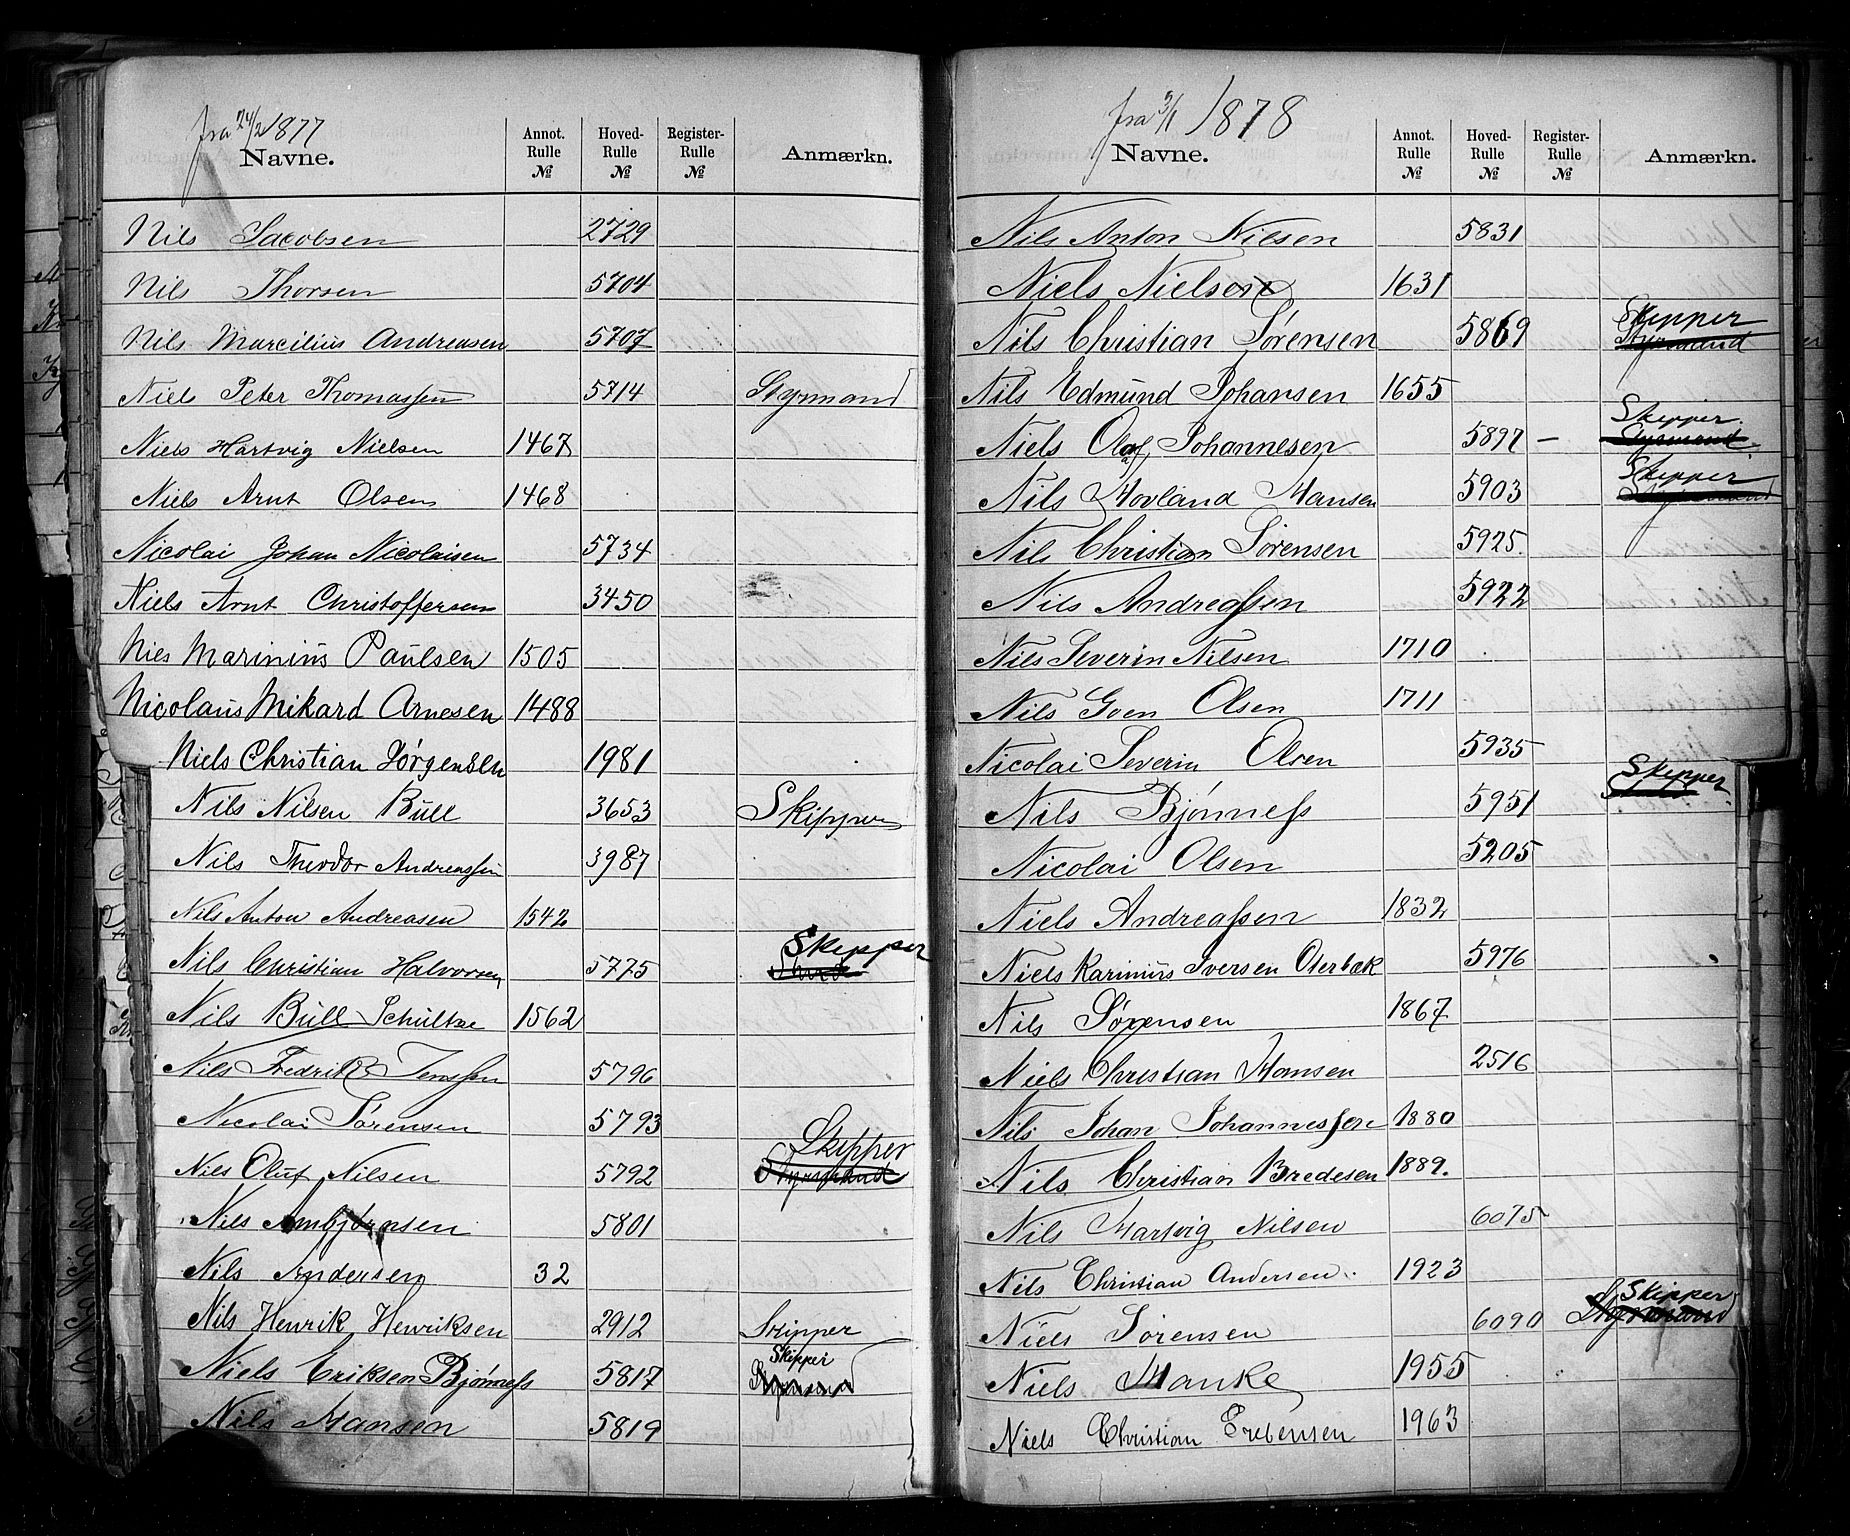 fra 24/2 1877
Navne. Annot. Rulle № Hoved- Rulle № Register- Rulle № Anmærkn.
Nils Jacobsen 2729
Nils Thorsen 5704
Nils Marcilius Andreasen 5707
Niels Peter Thomassen 5714 Styrmand
Niels Hartvig Nielsen 1467
Niels Arnt Olsen 1468
Nicolai Johan Nicolaisen 5734
Niels Arnt Christoffersen 3450
Nies Marinius Paulsen 1505
Nicolaus Mikard Arnesen 1488
Niels Christian Jörgensen 1981
Nils Nilsen Bull 3653 Skipper
Nils Theodor Andreassen 3987
Nils Anton Andreasen 1542
Skipper
Nils Christian Halvorsen 5775
Nils Bull Schultze 1562
Nils Fredrik Jenssen 5796
Nicolai Sørensen 5793
Skipper
Nils Oluf Nilsen 5792 Styrmand
Nils Ambjørnsen 5801
Nils Andersen 32
Nils Henrik Henriksen 2912 Skipper
Skipper
Niels Eriksen Bjønness 5817 Styrmand
Nils Hansen 5819
fra 3/1 1878
Navne. Annot. Rulle № Hoved- Rulle № Register- Rulle № Anmærkn.
Nils Anton Nilsen 5831
Niels Nielsen 1631
Skipper
Nils Christian Sørensen 5869 Styrmand
Nils Edmund Johansen 1655
Skipper
Niels Olaf Johannesen 5897 — Styrmand
Skipper
Nils Hovland Hansen 5903 Styrmand
Nils Christian Sørensen 5925
Nils Andreassen 5922
Nils Severin Nilsen 1710
Nils Gven Olsen 1711
Nicolai Severin Olsen 5935
Skipper
Nils Bjønness 5951
Nicolai Olsen 5205
Niels Andreassen 1832
Niels Karinius Iversen Oterbæk 5976
Nils Sørensen 1867
Niels Christian Hansen 2516
Nils Johan Johannessen 1880
Nils Christian Bredesen 1889.
Nils Hartvig Nilsen 6075
Nils Christian Andersen 1923
Skipper
Niels Sørensen 6090 Styrmand
Niels Hanke 1955
Niels Christian Erebensen 1963